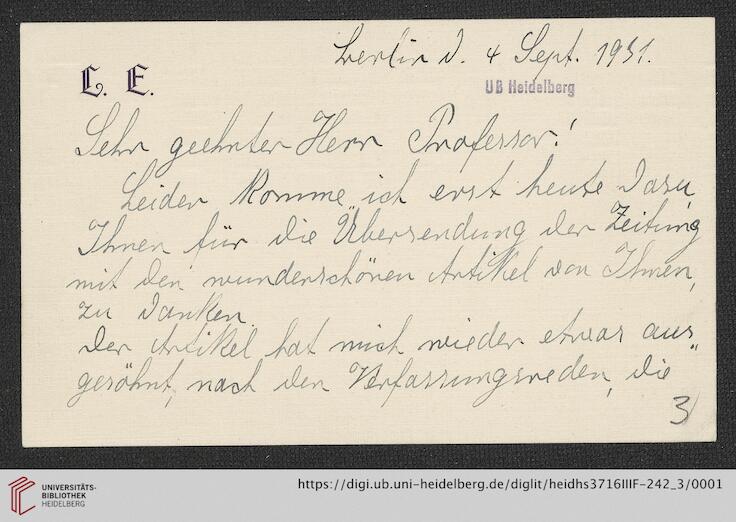 Berlin d. 4 Sept. 1931.
L. E.
UB Heidelberg
Sehr geehrter Herr Professor!
Leider komme ich erst heute dazu,
Ihnen für die Übersendung der Zeitung
mit den wunderschönen Artikel von Ihnen,
zu danken.
Der Artikel hat mich wieder etwas aus„
gesöhnt, nach den Verfassungsreden, die
3
UNIVERSITÄTS-
BIBLIOTHEK
HEIDELBERG
https://digi.ub.uni-heidelberg.de/diglit/heidhs3716IIIF-242_3/0001